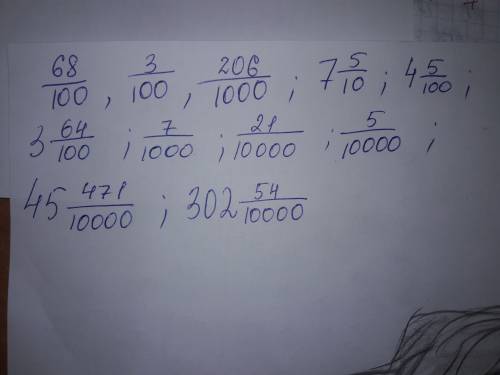 68/100, 3/100, 206/1000; 7 5/10; 4 5/100;
3 64/100; 7/1000; 21/10000; 5/10000;
45 471/10000; 302 54/10000